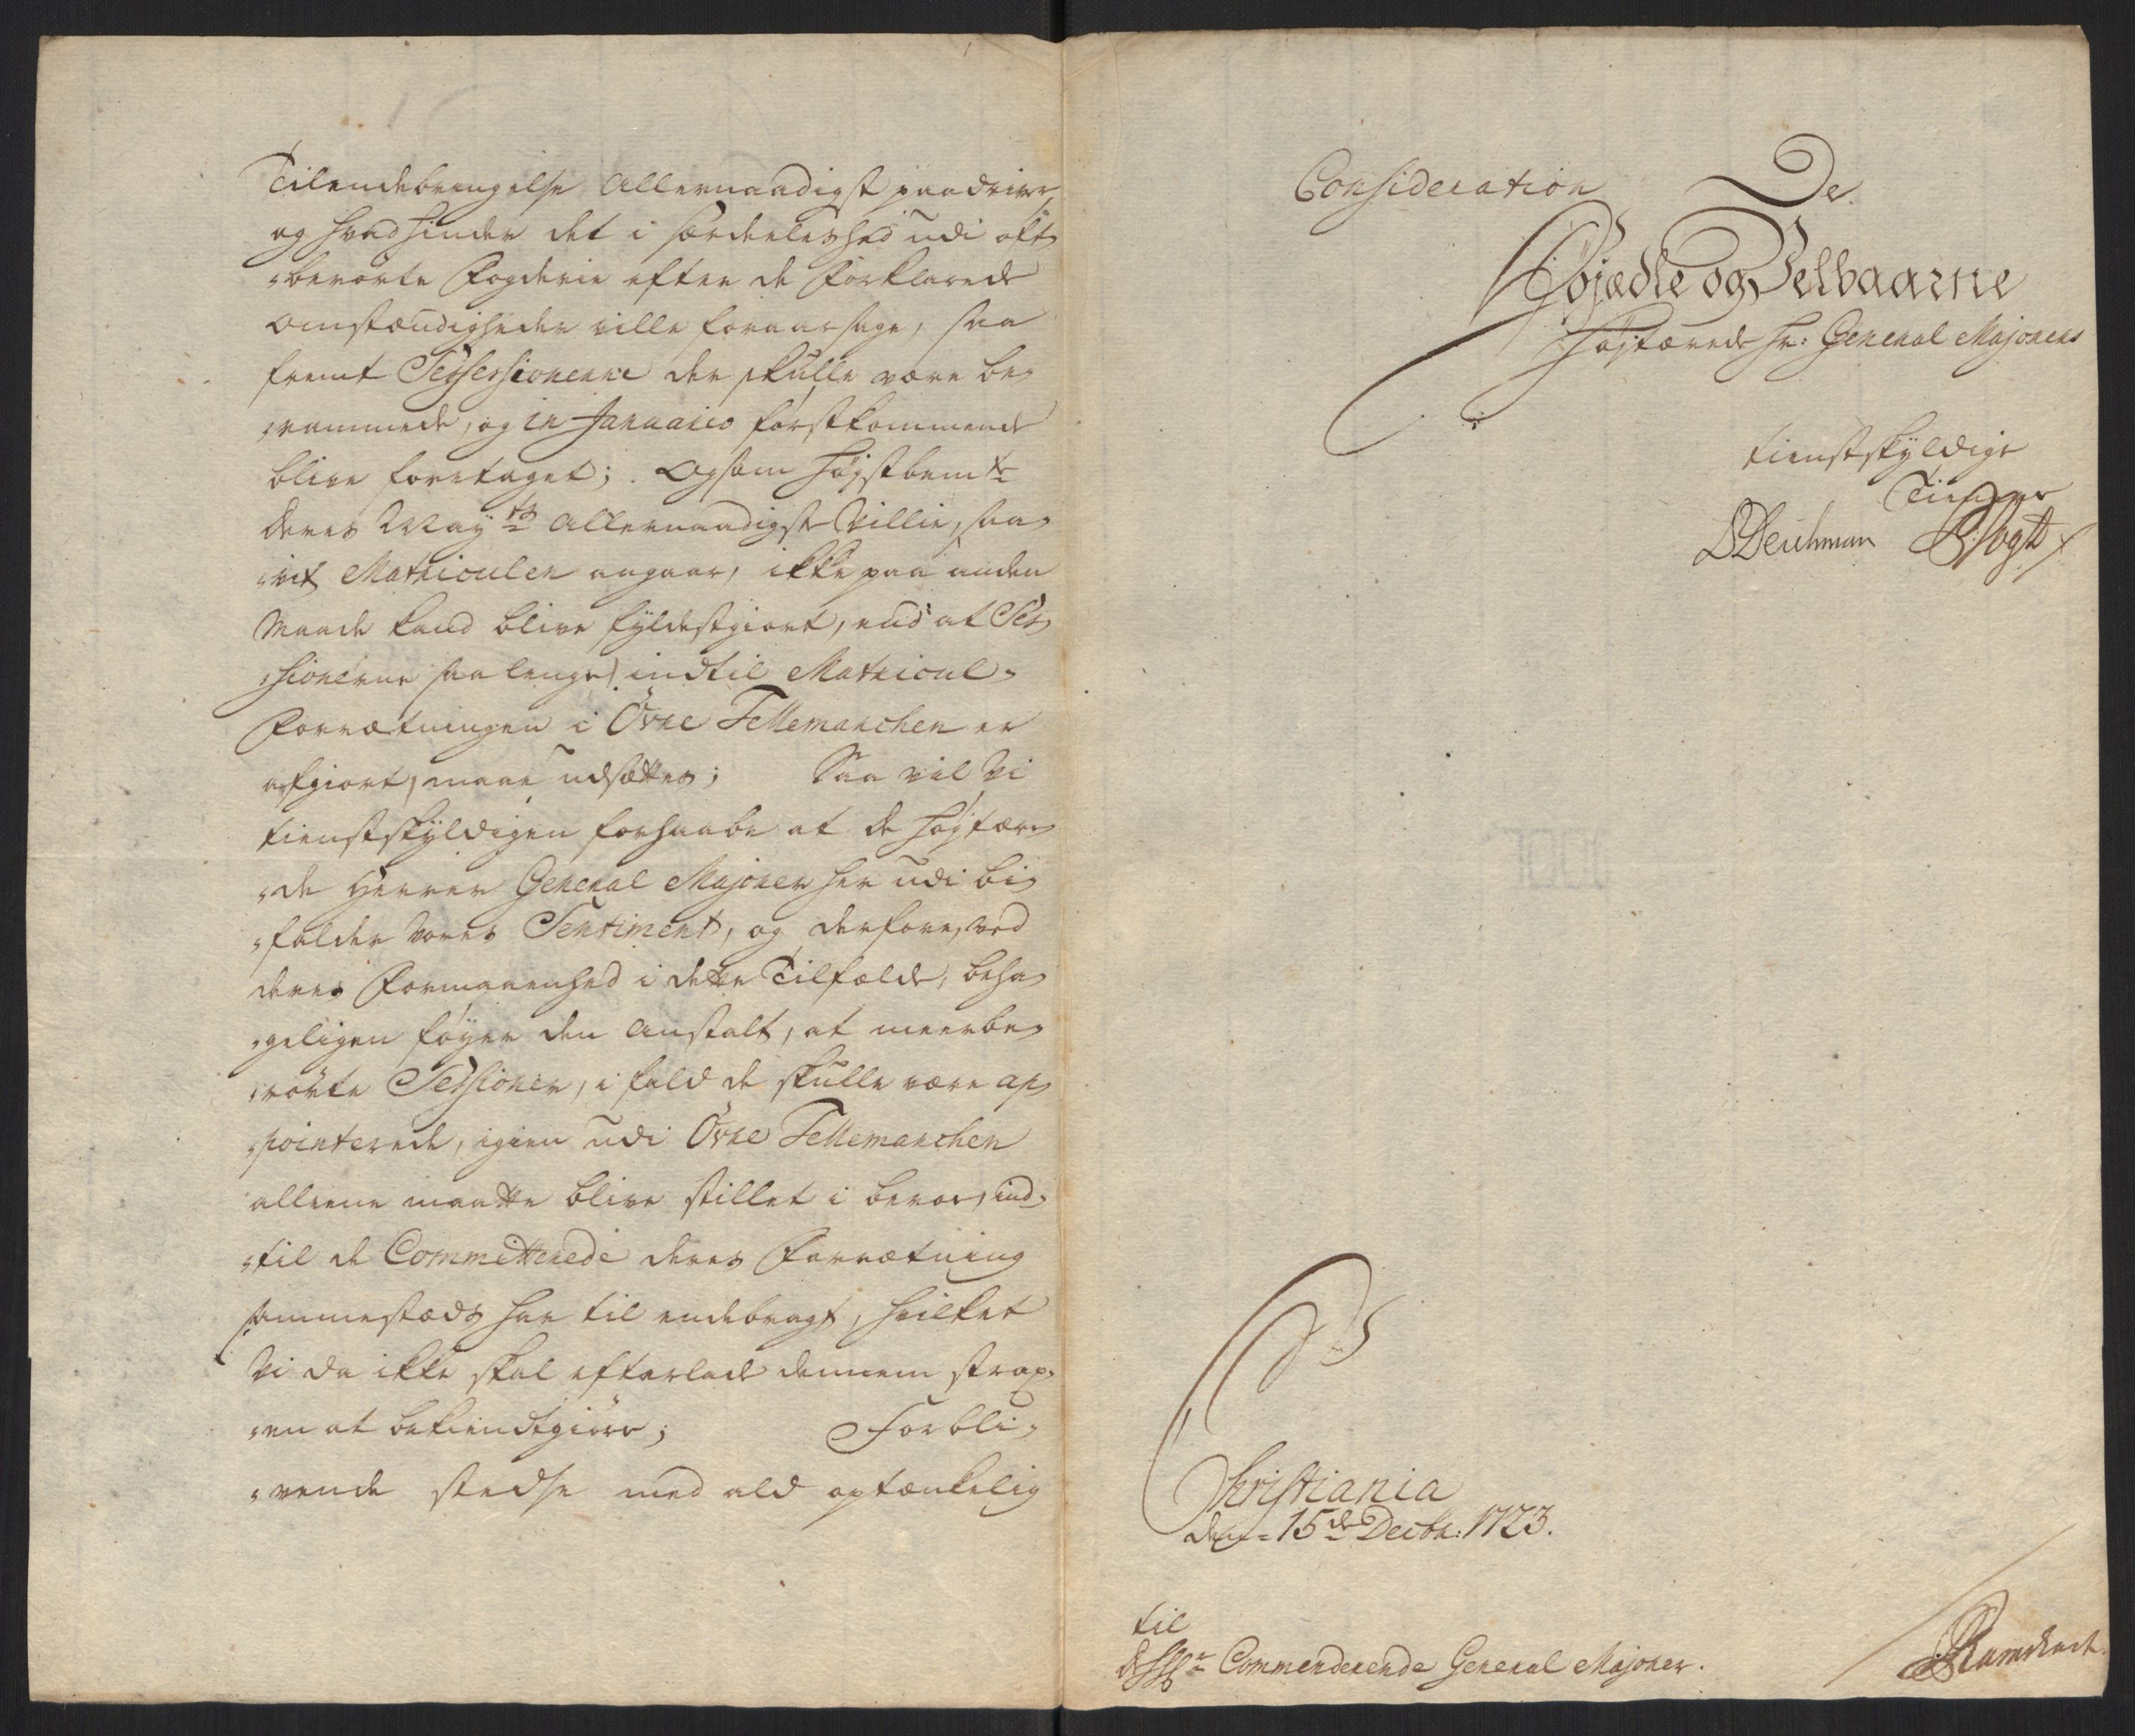 Tilendebringelse Allernaadigst paadriver,
og hvad hinder det i særdeleshed udi oft
berörte Fogderie efter de forklarede
omstændigheder ville foraarsage, saa
fremt Sessersionerne der skulle være be-
rammede, og in Januario förstkommende
blive foretaget; Og som høystbemte
Deres Mayts Allernaadigste Villie, saa-
vit Matriculen angaar, ikke paa anden
Maade kand blive fyldestgiort, end at Ses-
sionerne saalenge, indtil Matricul-
Forrætningen i Övre Tellemarchen er
afgiort, maae udsættes; Saa vil Vi
tienstskyldigen forhaabe at de Høyære-
de Herrer General Majorer her udi bi-
falder vores Sentiment, og derfore, ved
deres Formaaenhed i dette Tilfælde, beha-
geligen føyer den Anstalt, at meerbe-
rørte Sessioner, i fald de skulle være ap-
pointerede, igien udi Övre Tellemarchen
alleene maatte blive stillet i beroe, ind-
til de Committerede deres Forrætning
sammestæds har til endebragt, hvilket
Vi da ikke skal efterlade dennem strax-
en at bekiendtgiöre; Forbli-
vende stedse med ald optænkelig
Consideration
De
Höjædle og Velbaarne
Højtærede Hr: General Majorers
tienstskyldige
Tienere
BDeichman PVogt
Christiania
den 15de Decbr: 1723.
til
de Commenderende General Majorer.
Ramshart.